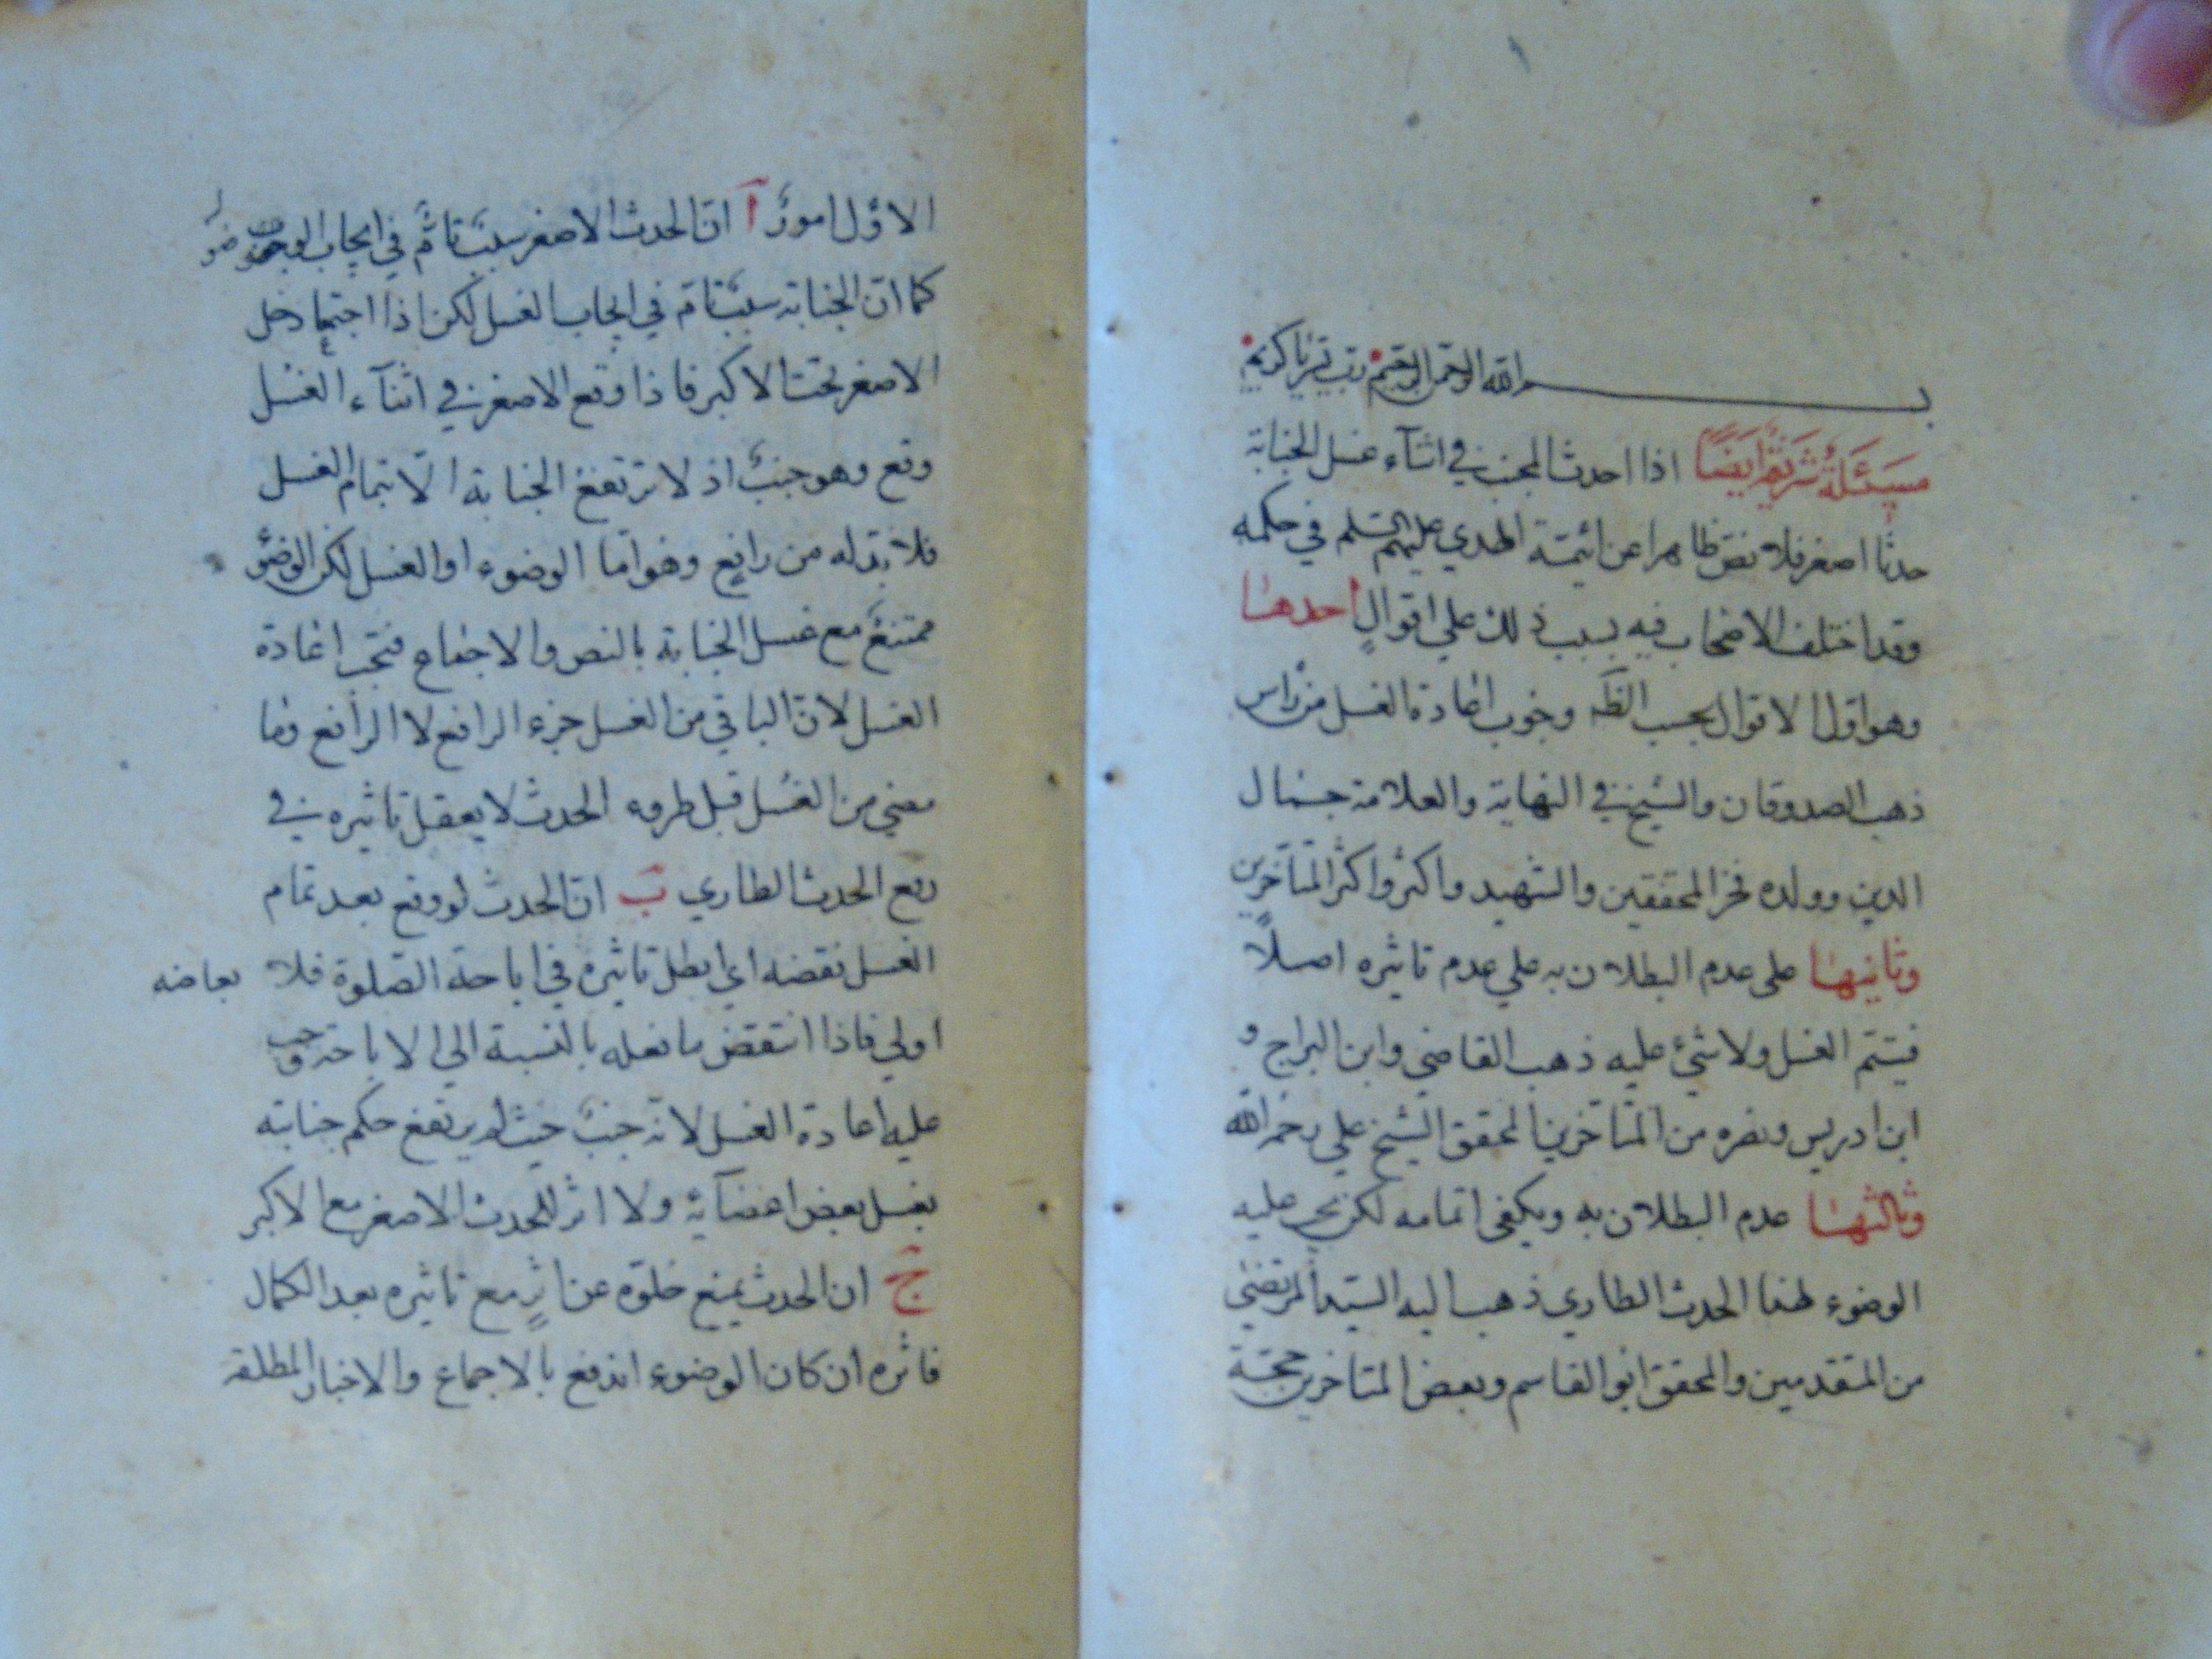 بسم الله الرحمن الرحيم رب يسر يا كريم
مسئلة شريفة ايضا اذا احدث المجنب في اثنآء غسل الجنابة
حدثا اصغر فلا نص ظاهرا عن ائيمة الهدي عليهم السلم في حكمه
وقد اختلف الاصحاب فيه بسبب ذلك علي اقوال احدها
وهو اقل الاقوال بحسب الظَّه وجوب اعادة الغسل من راس
ذهب الصدوقان والشيخ في النهاية والعلامة جمال
الدين وولده فخر المحققين والشهيد واكثر واكثر المتاخرين
وثانيها علي عدم البطلان به علي عدم تاثيره اصلاً
فيتم الغسل ولا شئ عليه ذهب القاضي وابن البراج و
ابن ادريس ونصره من المتاخرين المحقق الشيخ علي رحمه الله
وثالثها عدم البطلان به ويكفي اتمامه لكن يجب عليه
الوضوء لهذا الحدث الطاري ذهب اليه السيد المرتضي
من المتقدمين والمحقق ابو القاسم وبعض المتاخرين حجة
الاوّل امورٌ آ انّ الحدث الاصغر سببٌ تامٌّ في ايجاب الوضو
كما انّ الجنابة سببٌ تامّ في ايجاب الغسل لكن اذا اجتمعا دخل
الاصغر تحت الاكبر فاذا وقع الاصغر في اثنآء الغسل
وقع وهو جنبٌ اذ لا ترتفع الجنابة الّا بتمام الغسل
فلا بدّ له من رافع وهو امّا الوضوء او الغسل لكن الوضوَ
ممتنعٌ مع غسل الجنابة بالنص والاجماع فتجب اعادة
الغسل لانّ الباقي من الغسل جزء الرافع لا الرافع وما
مضي من الغسل قبل طروء الحدث لا يعقل تاثيره في
رفع الحدث الطاري بَ انّ الحدث لو وقع بعد تمام
الغسل نقضه اي ابطل تاثيره في اباحة الصلوة فلا بعاضه
اولي فاذا انتقض ما فعله بالنسبة الي الاباحة وجب
عليه اعادة الغسل لانه جنبٌ حيث لم يرتفع حكم جنابته
بغسل بعض اعضآئه ولا اثر للحدث الاصغر مع الاكبر
جَ ان الحدث يمنع خلوّه عن اثرٍ مع تاثيره بعد الكمال
فاثره ان كان الوضوء اندفع بالاجماع والاخبار المطلقة